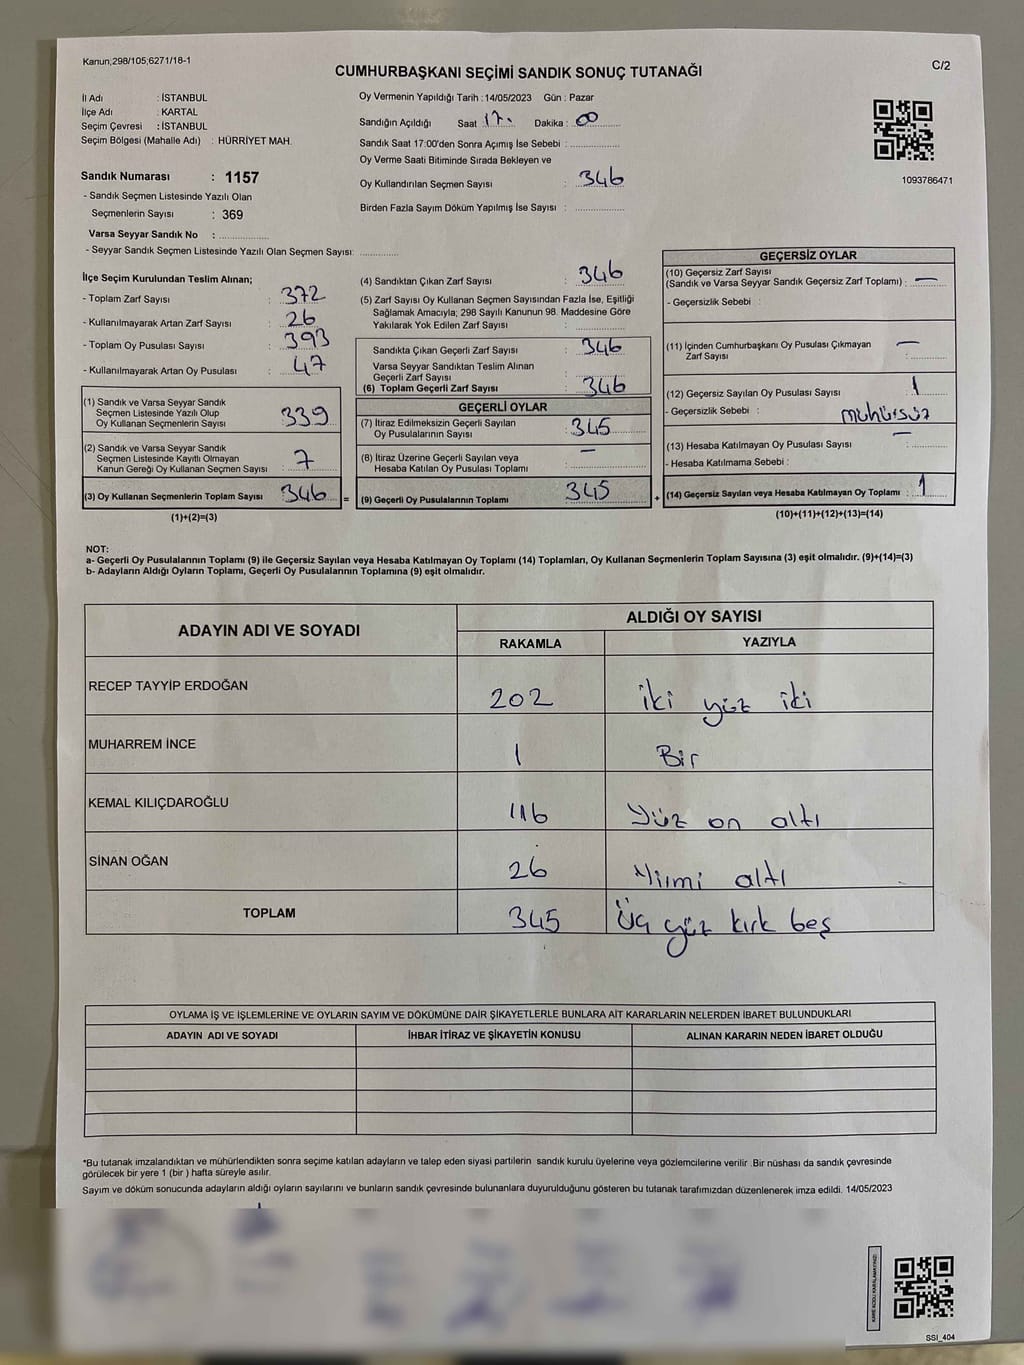 Kanun,298/105,6271/18-1
C/2
CUMHURBAŞKANI SEÇİMİ SANDIK SONUÇ TUTANAĞI
İl Adı : İSTANBUL
İlçe Adı : KARTAL
Seçim Çevresi : İSTANBUL
Seçim Bölgesi (Mahalle Adı) : HÜRRİYET MAH.
Sandık Numarası : 1157
- Sandık Seçmen Listesinde Yazılı Olan
Seçmenlerin Sayısı : 369
Varsa Seyyar Sandık No : ................
- Seyyar Sandık Seçmen Listesinde Yazılı Olan Seçmen Sayısı: ............
Oy Vermenin Yapıldığı Tarih : 14/05/2023 Gün : Pazar
Sandığın Açıldığı Saat 17. Dakika : 00
Sandık Saat 17:00'den Sonra Açımış İse Sebebi : ................
Oy Verme Saati Bitiminde Sırada Bekleyen ve
Oy Kullandırılan Seçmen Sayısı : 346
Birden Fazla Sayım Döküm Yapılmış İse Sayısı : ................
1093786471
İlçe Seçim Kurulundan Teslim Alınan;
- Toplam Zarf Sayısı : 372
- Kullanılmayarak Artan Zarf Sayısı : 26
- Toplam Oy Pusulası Sayısı : 393
- Kullanılmayarak Artan Oy Pusulası : 47
(1) Sandık ve Varsa Seyyar Sandık
Seçmen Listesinde Yazılı Olup
Oy Kullanan Seçmenlerin Sayısı : 339
(2) Sandık ve Varsa Seyyar Sandık
Seçmen Listesinde Kayıtlı Olmayan
Kanun Gereği Oy Kullanan Seçmen Sayısı : 7
(3) Oy Kullanan Seçmenlerin Toplam Sayısı : 346 =
(1)+(2)=(3)
(4) Sandıktan Çıkan Zarf Sayısı : 346
(5) Zarf Sayısı Oy Kullanan Seçmen Sayısından Fazla İse, Eşitliği
Sağlamak Amacıyla; 298 Sayılı Kanunun 98. Maddesine Göre
Yakılarak Yok Edilen Zarf Sayısı : ................
Sandıkta Çıkan Geçerli Zarf Sayısı : 346
Varsa Seyyar Sandıktan Teslim Alınan
Geçerli Zarf Sayısı
(6) Toplam Geçerli Zarf Sayısı : 346
GEÇERLİ OYLAR
(7) İtiraz Edilmeksizin Geçerli Sayılan
Oy Pusulalarının Sayısı : 345
(8) İtiraz Üzerine Geçerli Sayılan veya
Hesaba Katılan Oy Pusulası Toplamı : –
(9) Geçerli Oy Pusulalarının Toplamı : 345 +
GEÇERSİZ OYLAR
(10) Geçersiz Zarf Sayısı
(Sandık ve Varsa Seyyar Sandık Geçersiz Zarf Toplamı) : –
- Geçersizlik Sebebi :
(11) İçinden Cumhurbaşkanı Oy Pusulası Çıkmayan
Zarf Sayısı : –
(12) Geçersiz Sayılan Oy Pusulası Sayısı : 1
- Geçersizlik Sebebi : mühürsüz
(13) Hesaba Katılmayan Oy Pusulası Sayısı : –
- Hesaba Katılmama Sebebi :
(14) Geçersiz Sayılan veya Hesaba Katılmayan Oy Toplamı : 1
(10)+(11)+(12)+(13)=(14)
NOT:
a- Geçerli Oy Pusulalarının Toplamı (9) ile Geçersiz Sayılan veya Hesaba Katılmayan Oy Toplamı (14) Toplamları, Oy Kullanan Seçmenlerin Toplam Sayısına (3) eşit olmalıdır. (9)+(14)=(3)
b- Adayların Aldığı Oyların Toplamı, Geçerli Oy Pusulalarının Toplamına (9) eşit olmalıdır.
ADAYIN ADI VE SOYADI
ALDIĞI OY SAYISI
RAKAMLA YAZIYLA
RECEP TAYYİP ERDOĞAN 202 iki yüz iki
MUHARREM İNCE 1 Bir
KEMAL KILIÇDAROĞLU 116 Yüz on altı
SİNAN OĞAN 26 Yirmi altı
TOPLAM 345 Üç yüz kırk beş
OYLAMA İŞ VE İŞLEMLERİNE VE OYLARIN SAYIM VE DÖKÜMÜNE DAİR ŞİKAYETLERLE BUNLARA AİT KARARLARIN NELERDEN İBARET BULUNDUKLARI
ADAYIN ADI VE SOYADI İHBAR İTİRAZ VE ŞİKAYETİN KONUSU ALINAN KARARIN NEDEN İBARET OLDUĞU
*Bu tutanak imzalandıktan ve mühürlendikten sonra seçime katılan adayların ve talep eden siyasi partilerin sandık kurulu üyelerine veya gözlemcilerine verilir .Bir nüshası da sandık çevresinde
görülecek bir yere 1 (bir ) hafta süreyle asılır.
Sayım ve döküm sonucunda adayların aldığı oyların sayılarını ve bunların sandık çevresinde bulunanlara duyurulduğunu gösteren bu tutanak tarafımızdan düzenlenerek imza edildi. 14/05/2023
KARE KODU KARALAMAYINIZ!
SSI_404